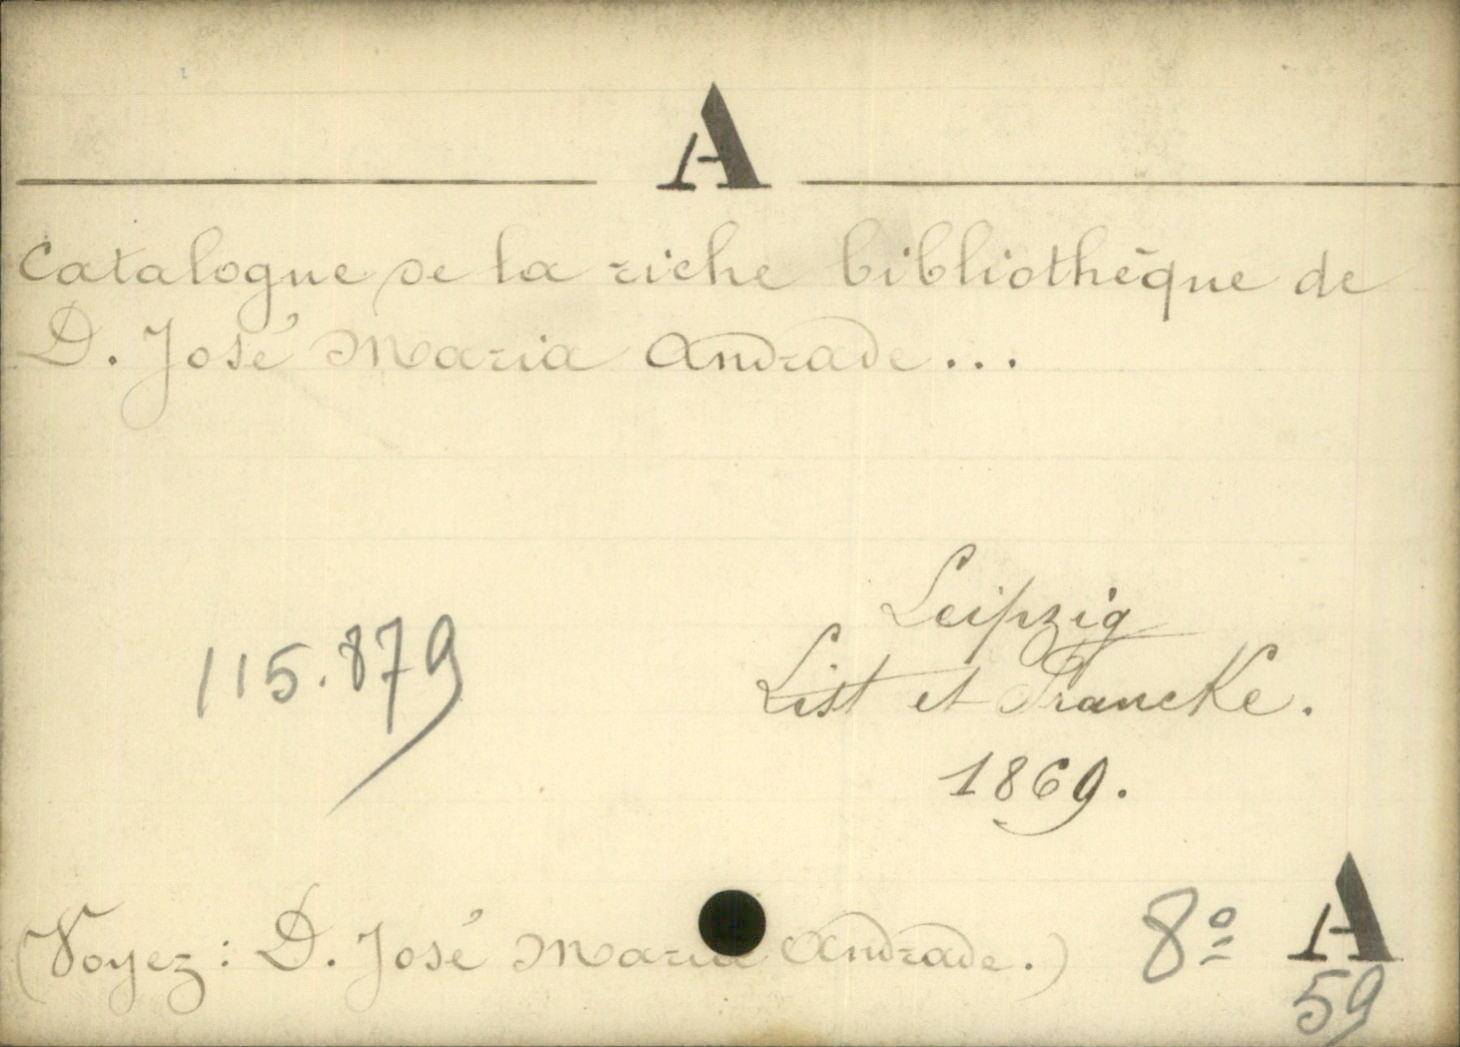 A
Catalogue de la riche bibliothèque de
D. José Maria Andrade...
Leipzig
115.879
List et Francke.
1869.
(Voyez: D. José Maria Andrade.) 8º A
59